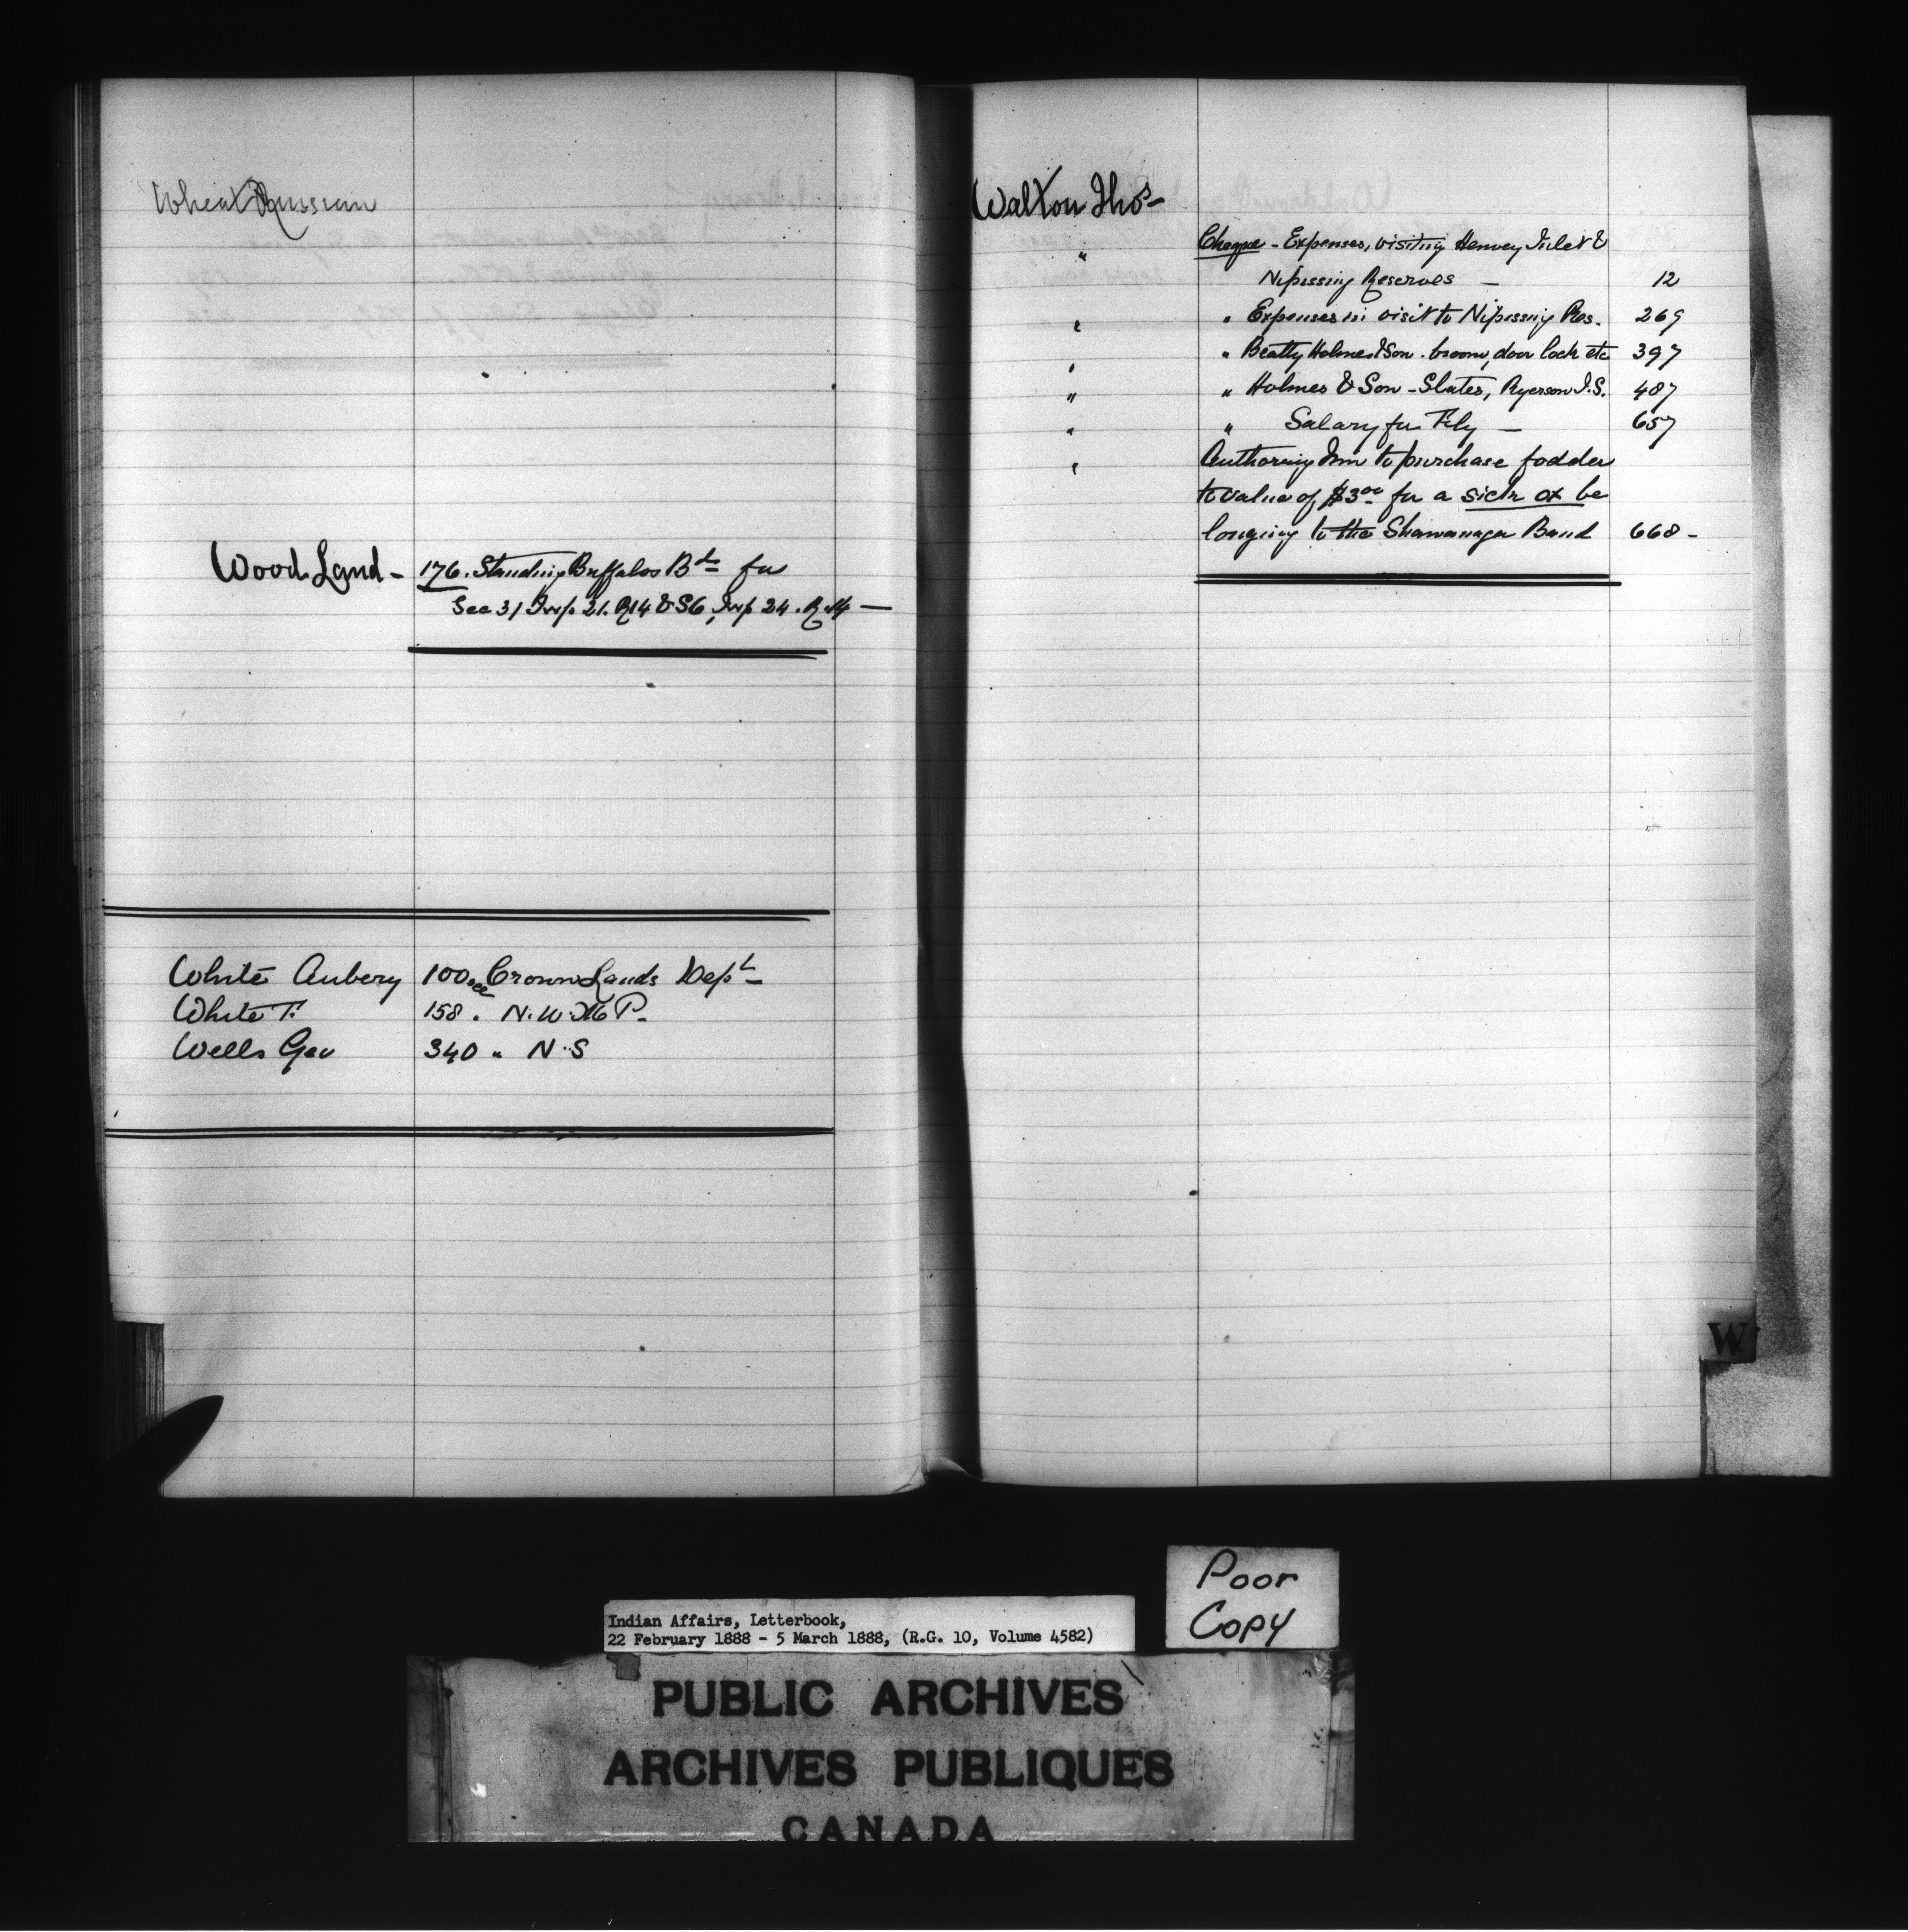 Wheat Russian
Wood Land - 176. Standing Buffalos Bd for
Sec 31 Twp 21. R14 & S6, Twp 24. R.14 —
White Aubery 100 see Crown Lands Dept
White T. 158 " N.W.M.P.
Wells Geo 340 " N.S
Walton Thos -
" Cheque - Expenses, visiting Henvey Inlet &
Nipissing Reserves — 12
" " Expenses in visit to Nipissing Res. 269
" " Beatty Holmes & Son. broom, door lock etc 397
" " Holmes & Son - Slates, Ryerson I.S. 487
" " Salary for Feby — 657
" Authorizing him to purchase fodder
to value of $3.00 for a sick ox be
longing to the Shawanaga Band 668 -
W
Poor
Copy
Indian Affairs, Letterbook,
22 February 1888 - 5 March 1888, (R.G. 10, Volume 4582)
PUBLIC ARCHIVES
ARCHIVES PUBLIQUES
CANADA